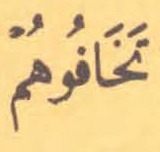 تَخَافُوهُمْ